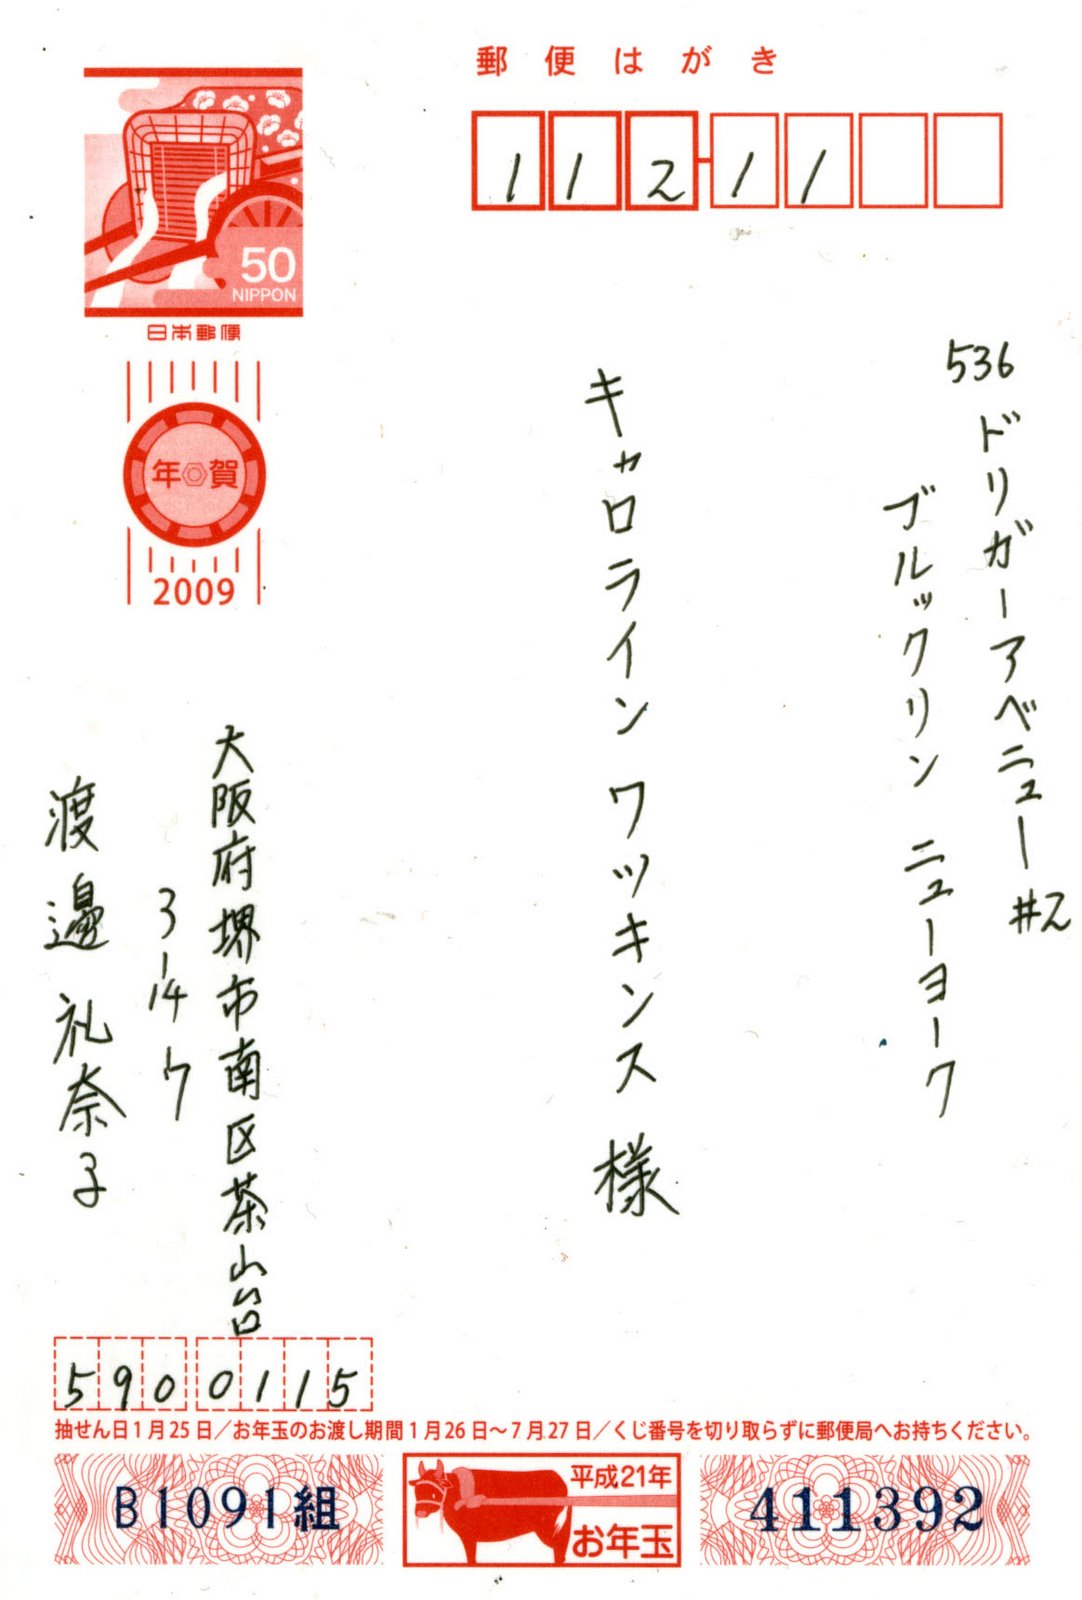 郵便はがき
112-11
50
NIPPON
日本郵便
年賀
2009
536
ドリガーアベニュー #2
ブルックリン ニューヨーク
キャロライン ワッキンス 様
大阪府堺市南区茶山台
3-14-7
渡邉 礼奈子
5900115
抽せん日1月25日/お年玉のお渡し期間1月26日~7月27日/くじ番号を切り取らずに郵便局へお持ちください。
B1091組
平成21年
お年玉
411392